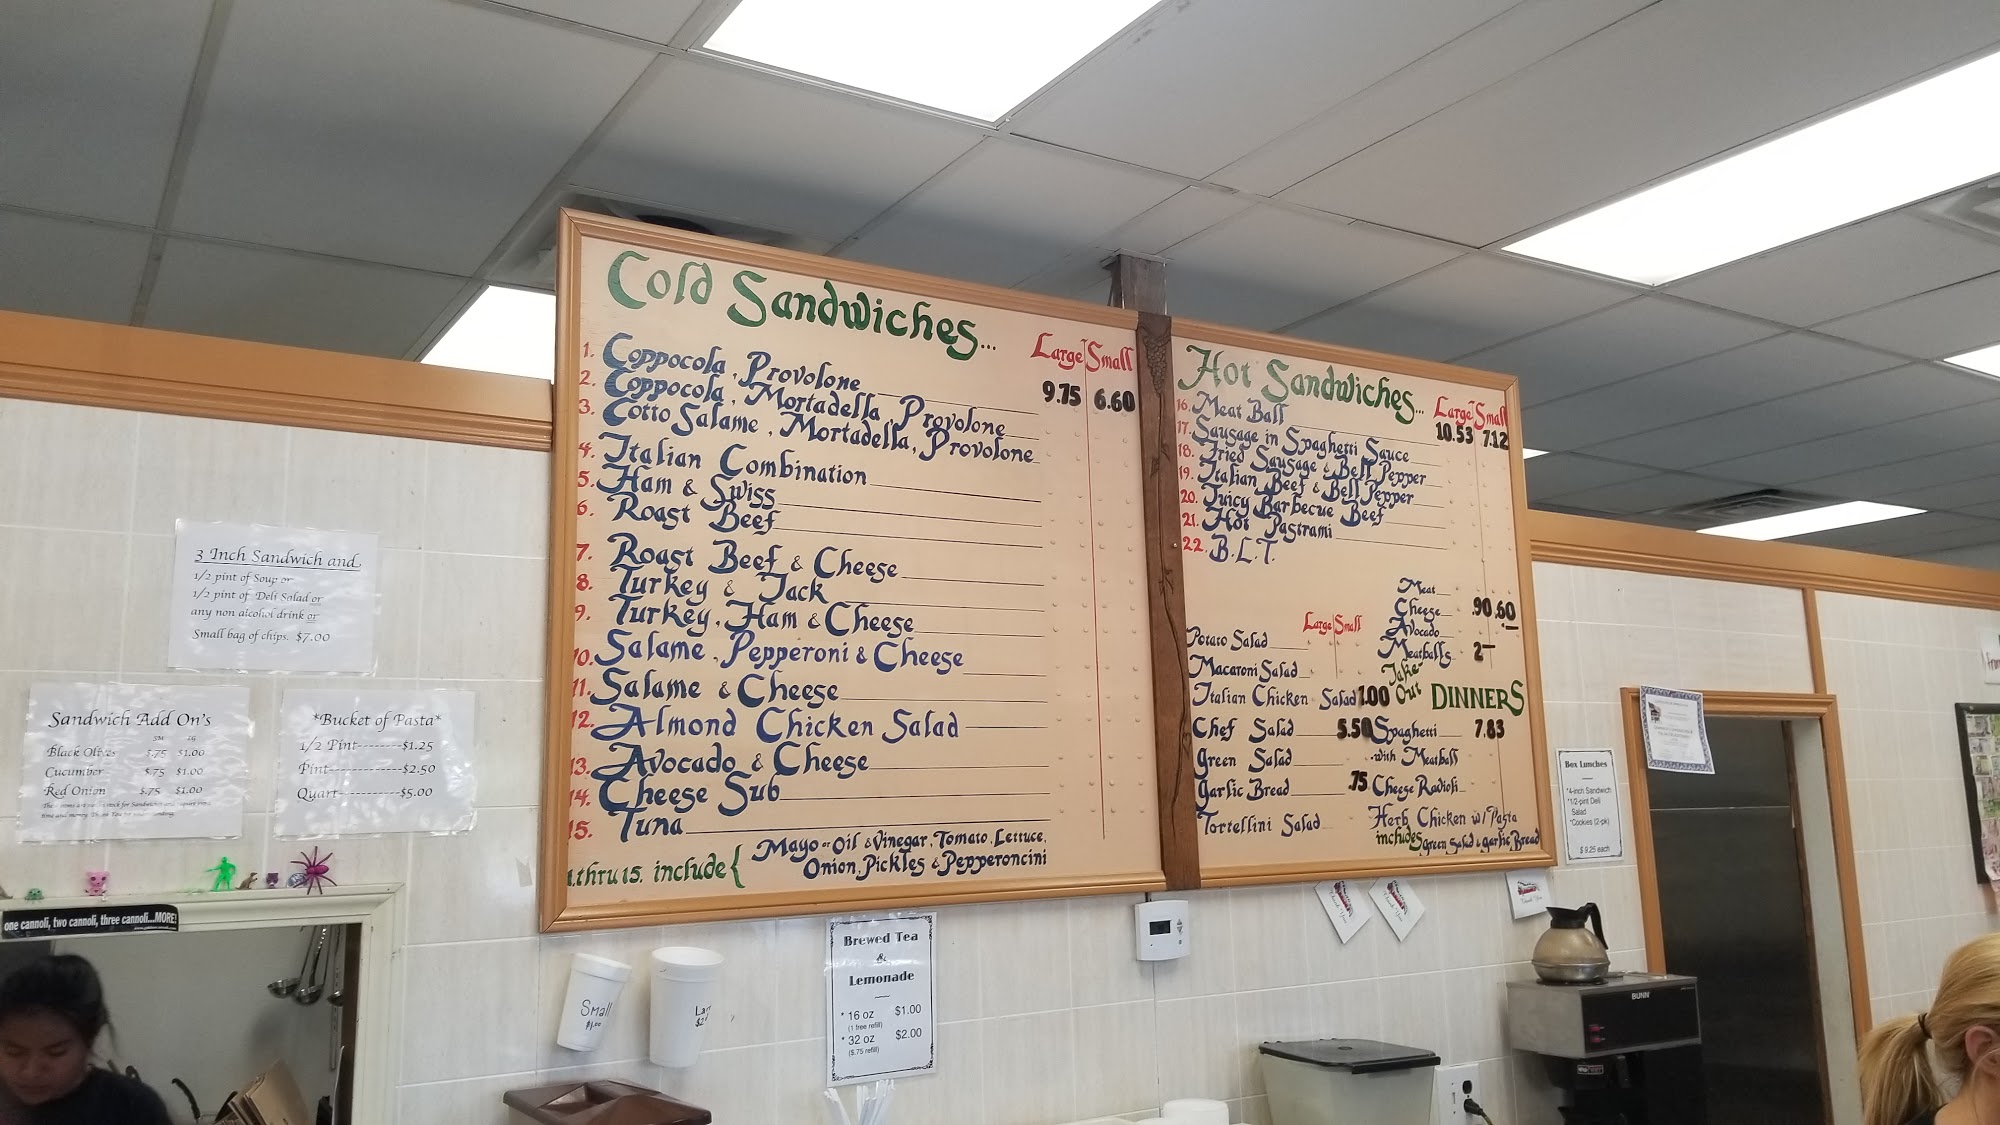 Cold Sandwiches...
Large Small
9.75 6.60
1. Coppocola, Provolone
2. Coppocola, Mortadella, Provolone
3. Cotto Salame, Mortadella, Provolone
4. Italian Combination
5. Ham & Swiss
6. Roast Beef
7. Roast Beef & Cheese
8. Turkey & Jack
9. Turkey, Ham & Cheese
10. Salame, Pepperoni & Cheese
11. Salame & Cheese
12. Almond Chicken Salad
13. Avocado & Cheese
14. Cheese Sub
15. Tuna
1. thru 15. include { Mayo or Oil & Vinegar, Tomato, Lettuce,
Onion, Pickles & Pepperoncini
Hot Sandwiches...
Large Small
10.53 7.12
16. Meat Ball
17. Sausage in Spaghetti Sauce
18. Fried Sausage & Bell Pepper
19. Italian Beef & Bell Pepper
20. Juicy Barbecue Beef
21. Hot Pastrami
22. B.L.T.
Meat
Cheese .90 .60
Avocado
Meatballs 2—
Large Small
Potato Salad
Macaroni Salad
Italian Chicken Salad 1.00
Chef Salad 5.50
Green Salad
Garlic Bread .75
Tortellini Salad
Take Out DINNERS
Spaghetti 7.83
with Meatball
Cheese Ravioli
Herb Chicken w/ Pasta
includes green salad & garlic Bread
3 Inch Sandwich and
1/2 pint of Soup or
1/2 pint of Deli Salad or
any non alcohol drink or
Small bag of chips. $7.00
Sandwich Add On's
SM LG
Black Olives $.75 $1.00
Cucumber $.75 $1.00
Red Onion $.75 $1.00
*Bucket of Pasta*
1/2 Pint--------$1.25
Pint------------$2.50
Quart----------$5.00
one cannoli, two cannoli, three cannoli...MORE!
Small
$1.00
Brewed Tea
&
Lemonade
* 16 oz $1.00
(1 free refill)
* 32 oz $2.00
($.75 refill)
Box Lunches
*4-inch Sandwich
*1/2-pint Deli
Salad
*Cookies (2-pk)
$9.25 each
Thank You
Thank You
Thank You
BUNN